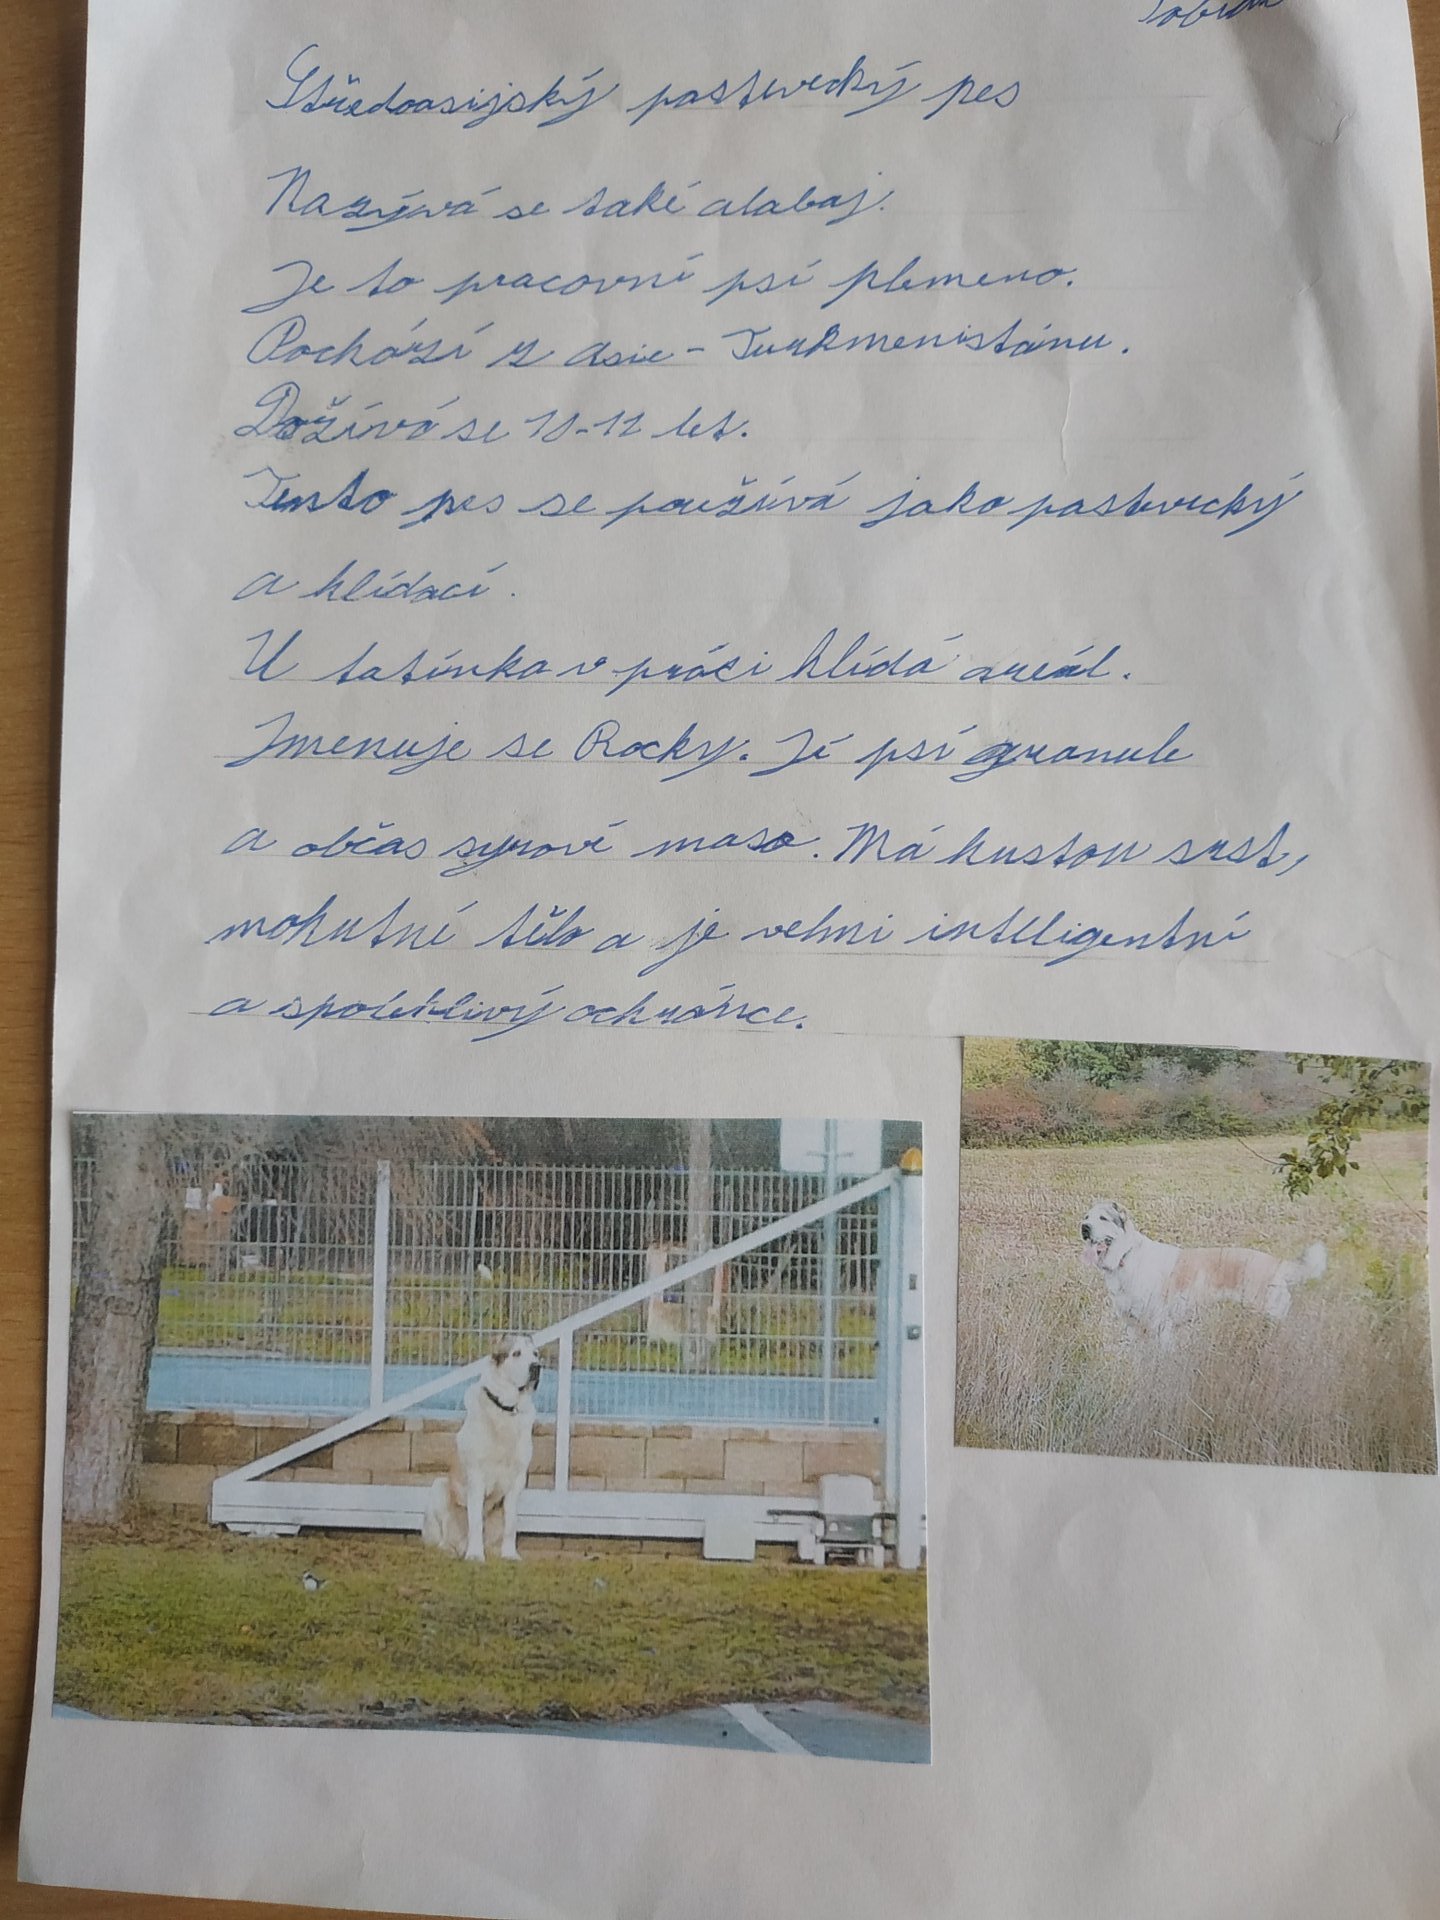 Středoasijský pastevecký pes
Nazývá se také alabaj.
Je to pracovní psí plemeno.
Pochází z Asie - Turkmenistánu.
Dožívá se 10-12 let.
Tento pes se používá jako pastevecký
a hlídací.
U tatínka v práci hlídá areál.
Jmenuje se Rocky. Jí psí granule
a občas syrové maso. Má hustou srst,
mohutné tělo a je velmi intelligentní
a spolehlivý ochránce.